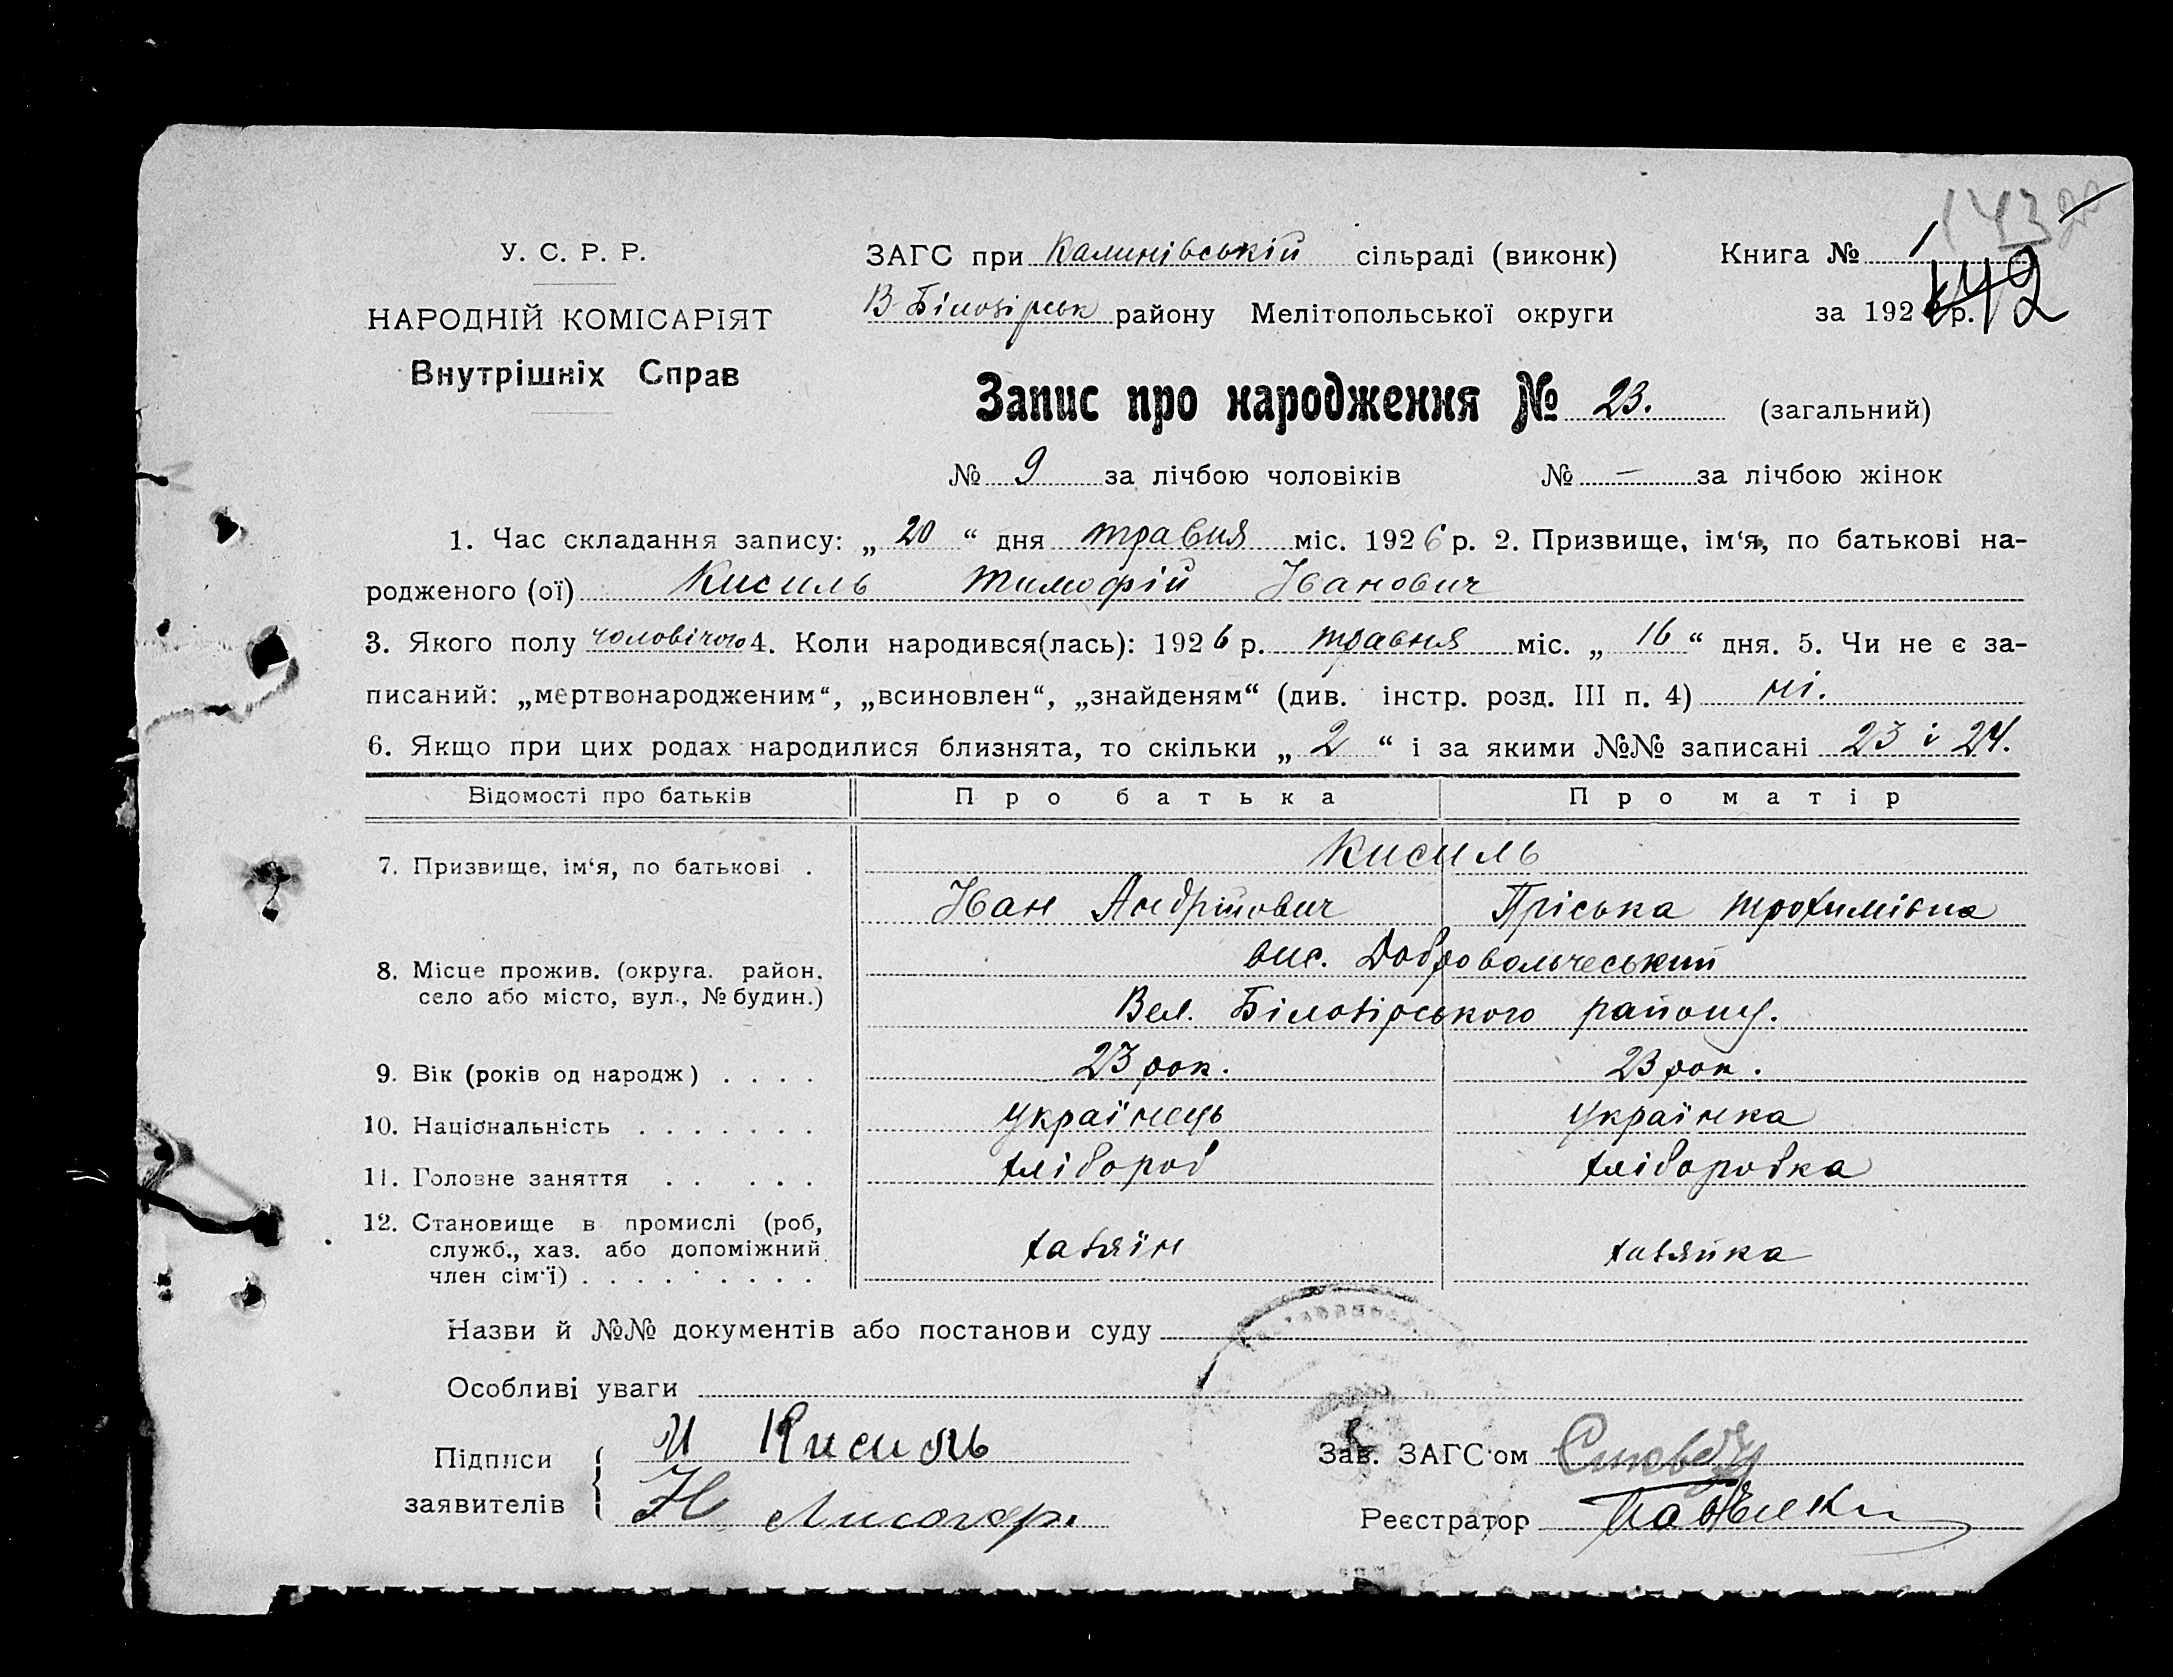 143
У. С. Р. Р.
ЗАГС при Калинівській сільраді (виконк) Книга № 1
142
НАРОДНІЙ КОМІСАРІЯТ
В-Білозірськ району Мелітопольської округи за 1926 р.
Внутрішніх Справ
Запис про народження № 23. (загальний)
№ 9 за лічбою чоловіків № — за лічбою жінок
1. Час складання запису: „ 20 “ дня травня міс. 1926 р. 2. Призвище, ім‘я, по батькові на-
родженого (ої) Кисиль Тимофій Іванович
3. Якого полу чоловічого 4. Коли народився(лась): 1926 р. травня міс. „ 16 “ дня. 5. Чи не є за-
писаний: „мертвонародженим“, „всиновлен“, „знайденям“ (див. інстр. розд. III п. 4) ні.
6. Якщо при цих родах народилися близнята, то скільки „ 2 “ і за якими №№ записані 23 і 24.
Відомості про батьків Про батька Про матір
7. Призвище, ім‘я, по батькові . Кисиль
Іван Андрійович Пріська Трохимівна
8. Місце прожив. (округа. район, вис. Добровольчеський
село або місто, вул., № будин.) Вел. Білозірського району.
9. Вік (років од народж) . . . . 23 рок. 23 рок.
10. Національність . . . . . . . українець українка
11. Головне заняття . . . . . хлібороб хліборобка
12. Становище в промислі (роб,
служб., хаз. або допоміжний хазяїн хазяйка
член сім‘ї) . . . . . . . . .
Назви й №№ документів або постанови суду
Особливі уваги
Підписи И Кисиль Зав. ЗАГС‘ом
заявителів Н Лисогор. Реєстратор